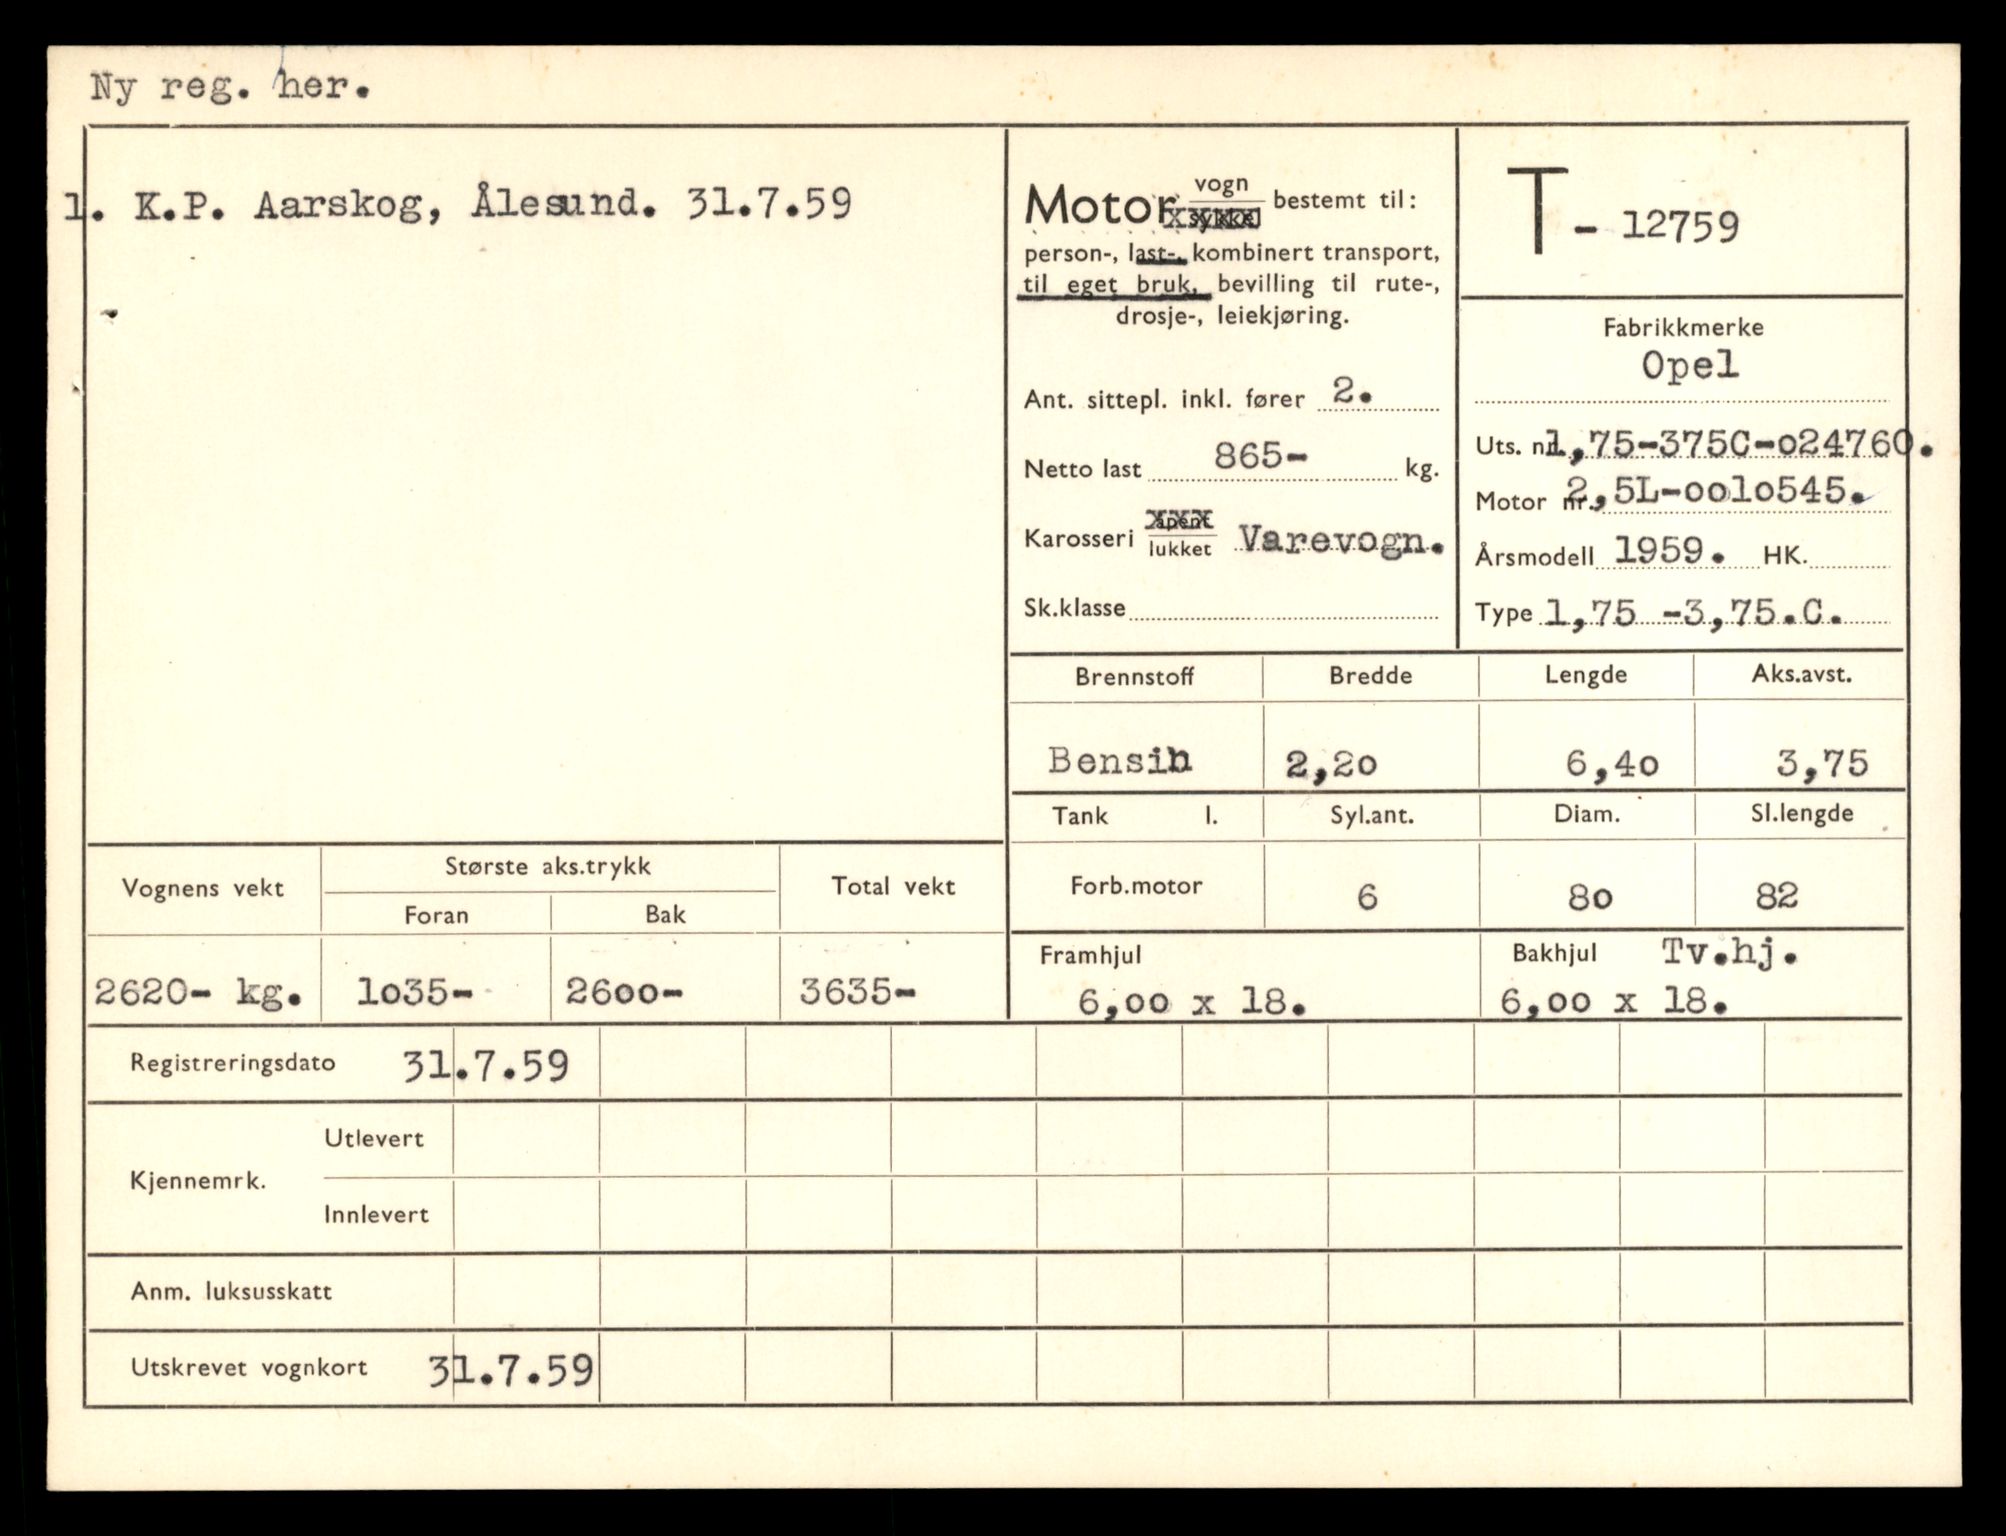 Ny reg. her.
1. K.P. Aarskog, Ålesund. 31.7.59
Motor vogn bestemt til:
sykkel
person-, last-, kombinert transport,
til eget bruk, bevilling til rute-,
drosje-, leiekjøring.
Ant. sittepl. inkl. fører 2.
Netto last 865- kg.
Karosseri åpent
lukket Varevogn.
Sk.klasse
T - 12759
Fabrikkmerke
Opel
Uts. nr. 1,75-375C-o24760.
Motor nr. 2,5L-oo1o545.
Årsmodell 1959. HK.
Type 1,75 -3,75.C.
Brennstoff Bredde Lengde Aks.avst.
Bensin 2,2o 6,4o 3,75
Tank l. Syl.ant. Diam. Sl.lengde
Forb.motor 6 8o 82
Framhjul Bakhjul Tv.hj.
6,oo x 18. 6,oo x 18.
Vognens vekt Største aks.trykk Total vekt
Foran Bak
2620- kg. 1o35- 26oo- 3635-
Registreringsdato 31.7.59
Kjennemrk. Utlevert
Innlevert
Anm. luksusskatt
Utskrevet vognkort 31.7.59